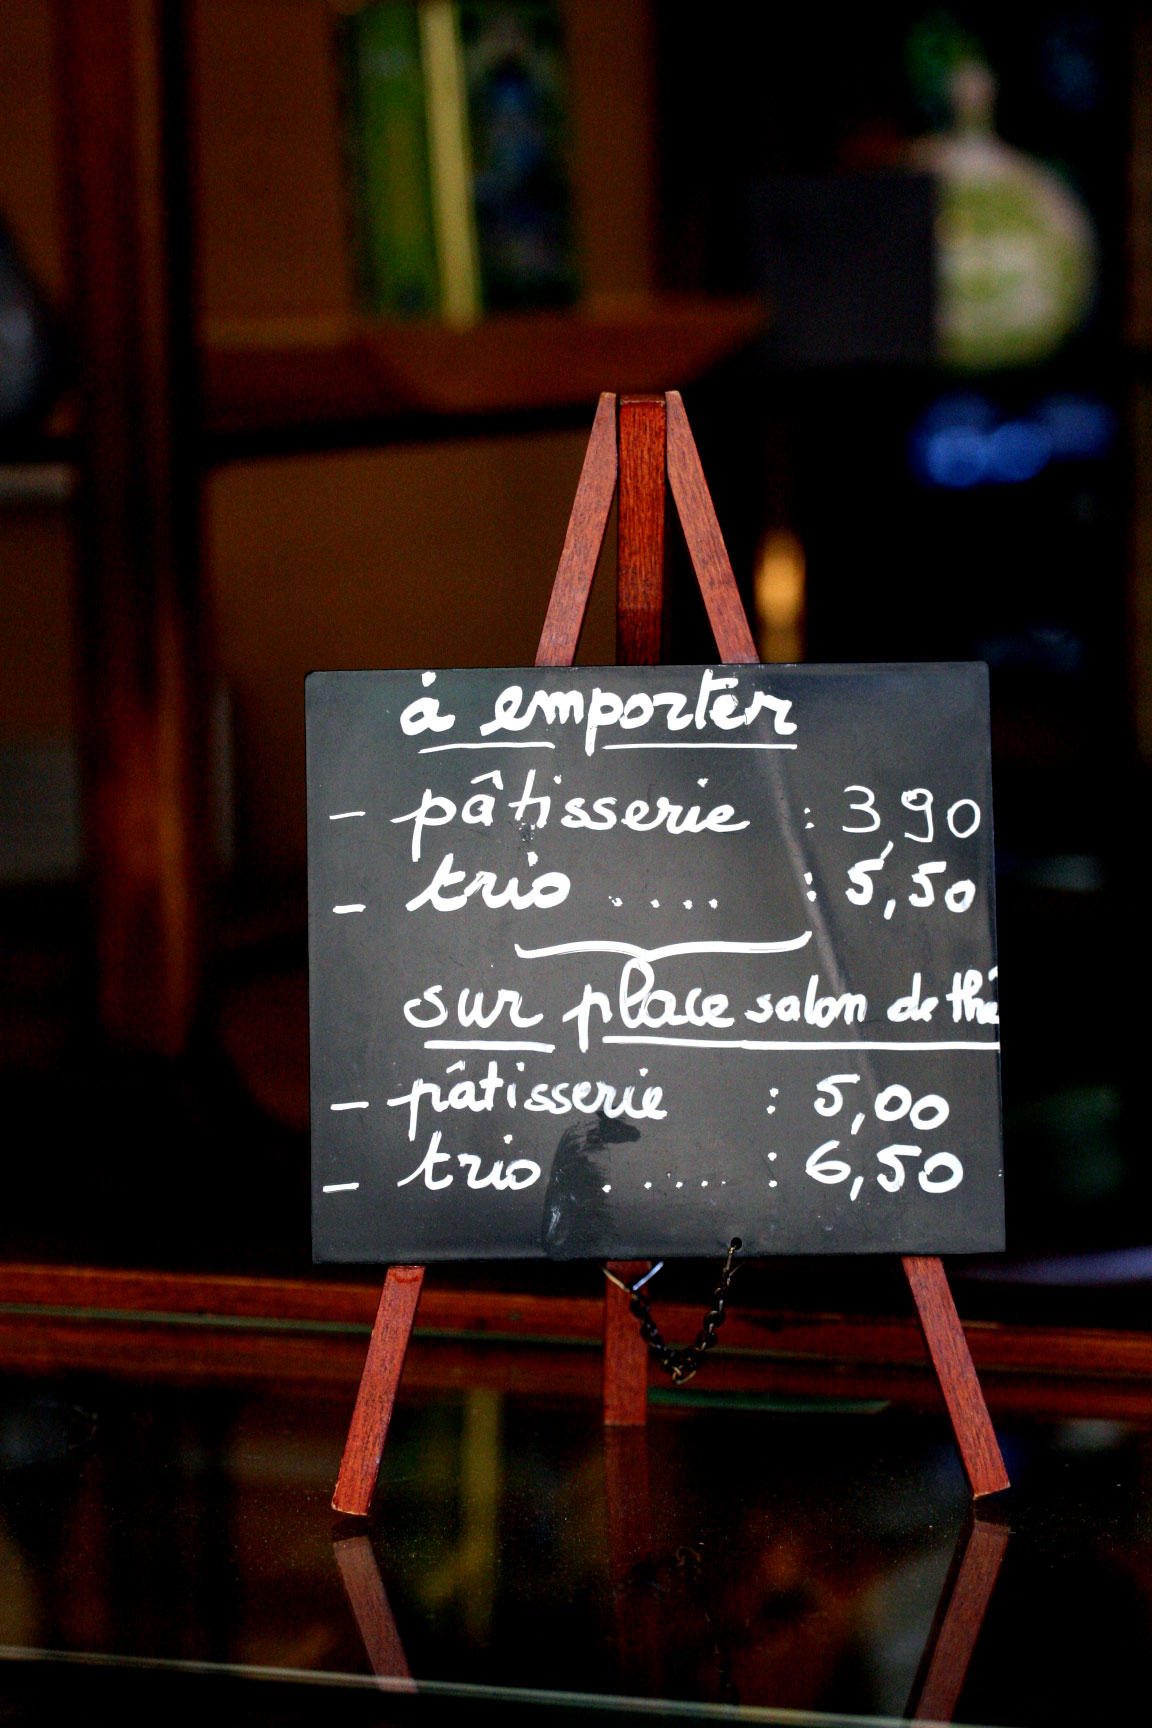 à emporter
- pâtisserie : 3,90
- trio .... : 5,50
sur place salon de thé
- pâtisserie : 5,00
- trio ...... : 6,50